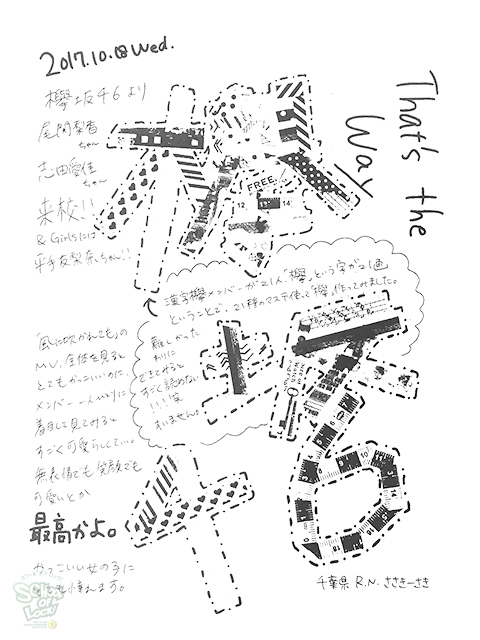 2017.10.18 Wed.
欅坂46より
尾関梨香
ちゃん
志田愛佳
ちゃん
来校!!
& Girlsには
平手友梨奈ちゃん!!
That's the
Way
欅
FREE.
12
14
漢字欅メンバーが21人、「欅」という字が21画
ということで、21種のマステ使って「欅」作ってみました。
難しかった
わりに
できてみると
すごく読めない
!!!笑
すいません。
坂
46
「風に吹かれても」の
MV、全体を見ると
とてもかっこいいのに、
メンバー一人ひとりに
着目して見てみると
すごく可愛らしくて…。
無表情でも笑顔でも
可愛いとか
最高かよ。
かっこいい女の子に
憧れます。
千葉県 R.N. ささきーさき